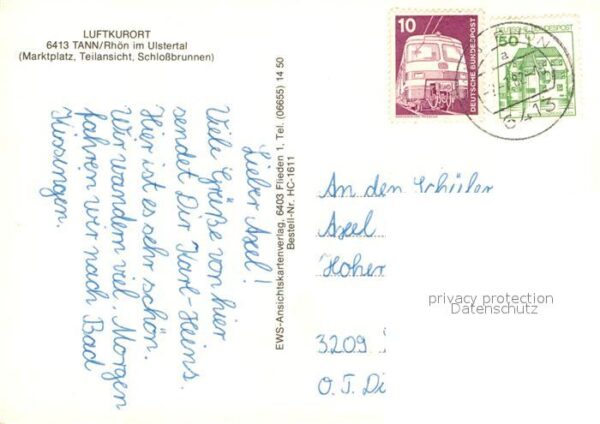 LUFTKURORT
6413 TANN/Rhön im Ulstertal
(Marktplatz, Teilansicht, Schloßbrunnen)
Lieber Axel!
Viele Grüße von hier
sendet Dir Karl-Heins.
Hier ist es sehr schön.
Wir wandern viel. Morgen
fahren wir nach Bad
Kissingen.
EWS-Ansichtskartenverlag, 6403 Flieden 1, Tel. (06655) 14 50
Bestell-Nr. HC-1611
10
DEUTSCHE BUNDESPOST
50
6413
An den Schüler
Axel
Hoher
3209
O.T. Di
privacy protection
Datenschutz